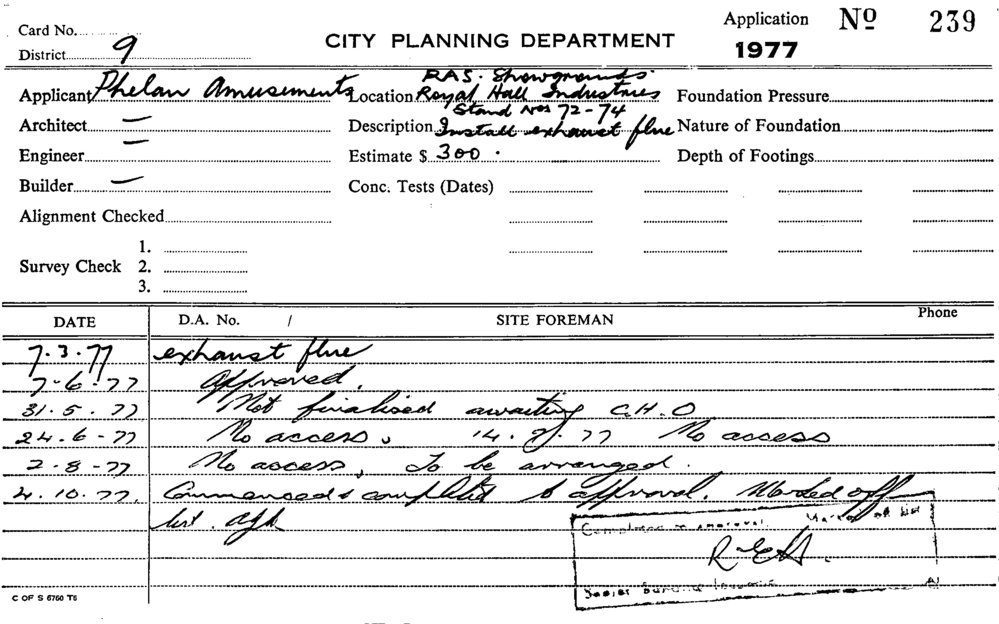 Card No.
District 9
CITY PLANNING DEPARTMENT
Application No 239
1977
Applicant Phelan Amusements
Location R.A.S. Showgrounds
Royal Hall Industries
Stand Nos 72-74
Foundation Pressure
Architect —
Description Install exhaust flue
Nature of Foundation
Engineer —
Estimate $ 300.
Depth of Footings
Builder —
Conc. Tests (Dates)
Alignment Checked
Survey Check 1.
2.
3.
DATE D.A. No. / SITE FOREMAN Phone
7.3.77 exhaust flue
7-6-77 Approved.
31.5.77 Not finalised awaiting C.H.O
24.6-77 No access. 14.7.77 No access
2-8-77 No access, To be arranged.
4.10.77. Commenced & completed to approval. Marked off
list.
Completed to approval Marked off list
Senior Building
C OF S 6760 T5